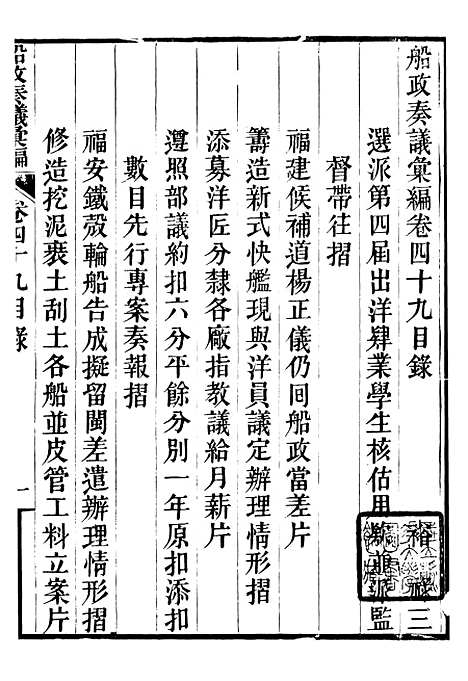 船政奏議彙編卷四十九目錄
選派第四屆出洋肄業學生核估用 監
督帶往摺
福建候補道楊正儀仍回船政當差片
籌造新式快艦現與洋員議定辦理情形摺
添募洋匠分隸各廠指教議給月薪片
遵照部議約扣六分平餘分別一年原扣添扣
數目先行專案奏報摺
福安鐵殼輪船告成擬留閩差遣辦理情形摺
修造挖泥裝土刮土各船並皮管工料立案片
船政奏議彙編
卷四十九目錄
一
三